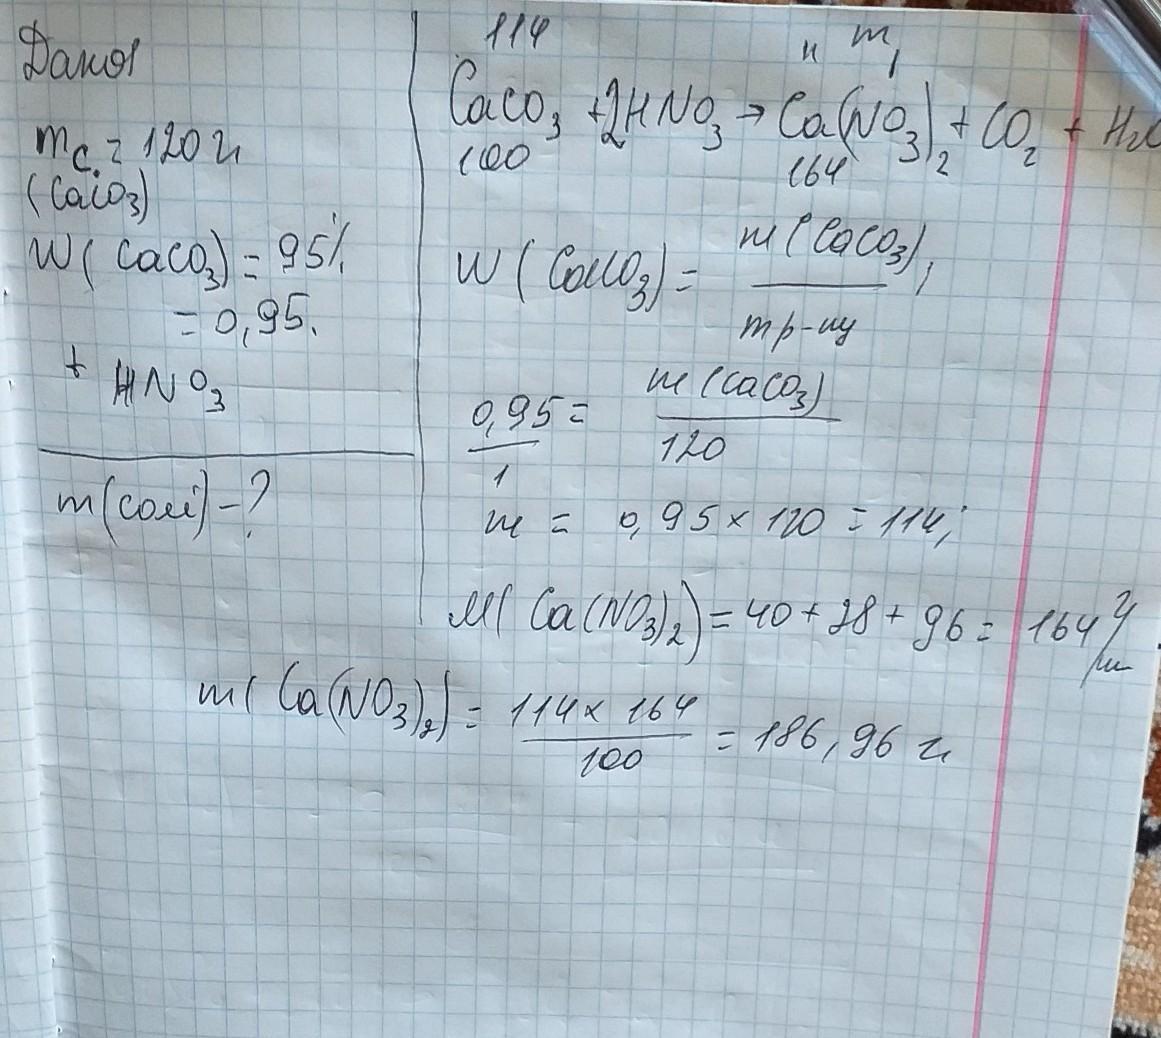 Дано:
mс. = 120 г
(CaCO₃)
W(CaCO₃) = 95%
= 0,95.
+ HNO₃
m(солі) - ?
114 m₁
CaCO₃ + 2HNO₃ → Ca(NO₃)₂ + CO₂ + H₂O
100 164
W(CaCO₃) = m(CaCO₃) / m р-ну ;
0,95 / 1 = m(CaCO₃) / 120
m = 0,95 × 120 = 114;
M(Ca(NO₃)₂) = 40 + 28 + 96 = 164 г/
m(Ca(NO₃)₂) = 114 × 164 / 100 = 186,96 г